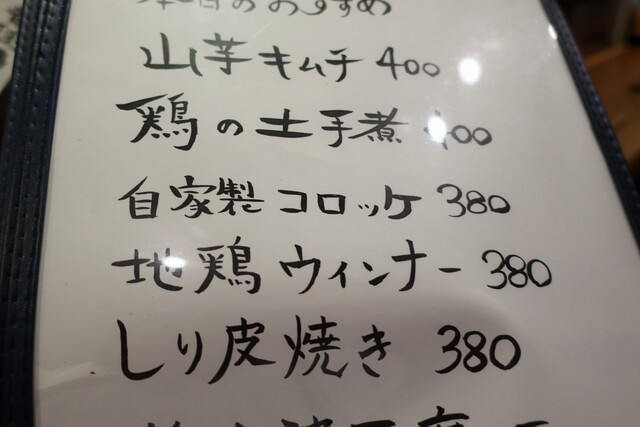 本日のおすすめ
山芋キムチ 400
鶏の土手煮 400
自家製コロッケ 380
地鶏ウィンナー 380
しり皮焼き 380